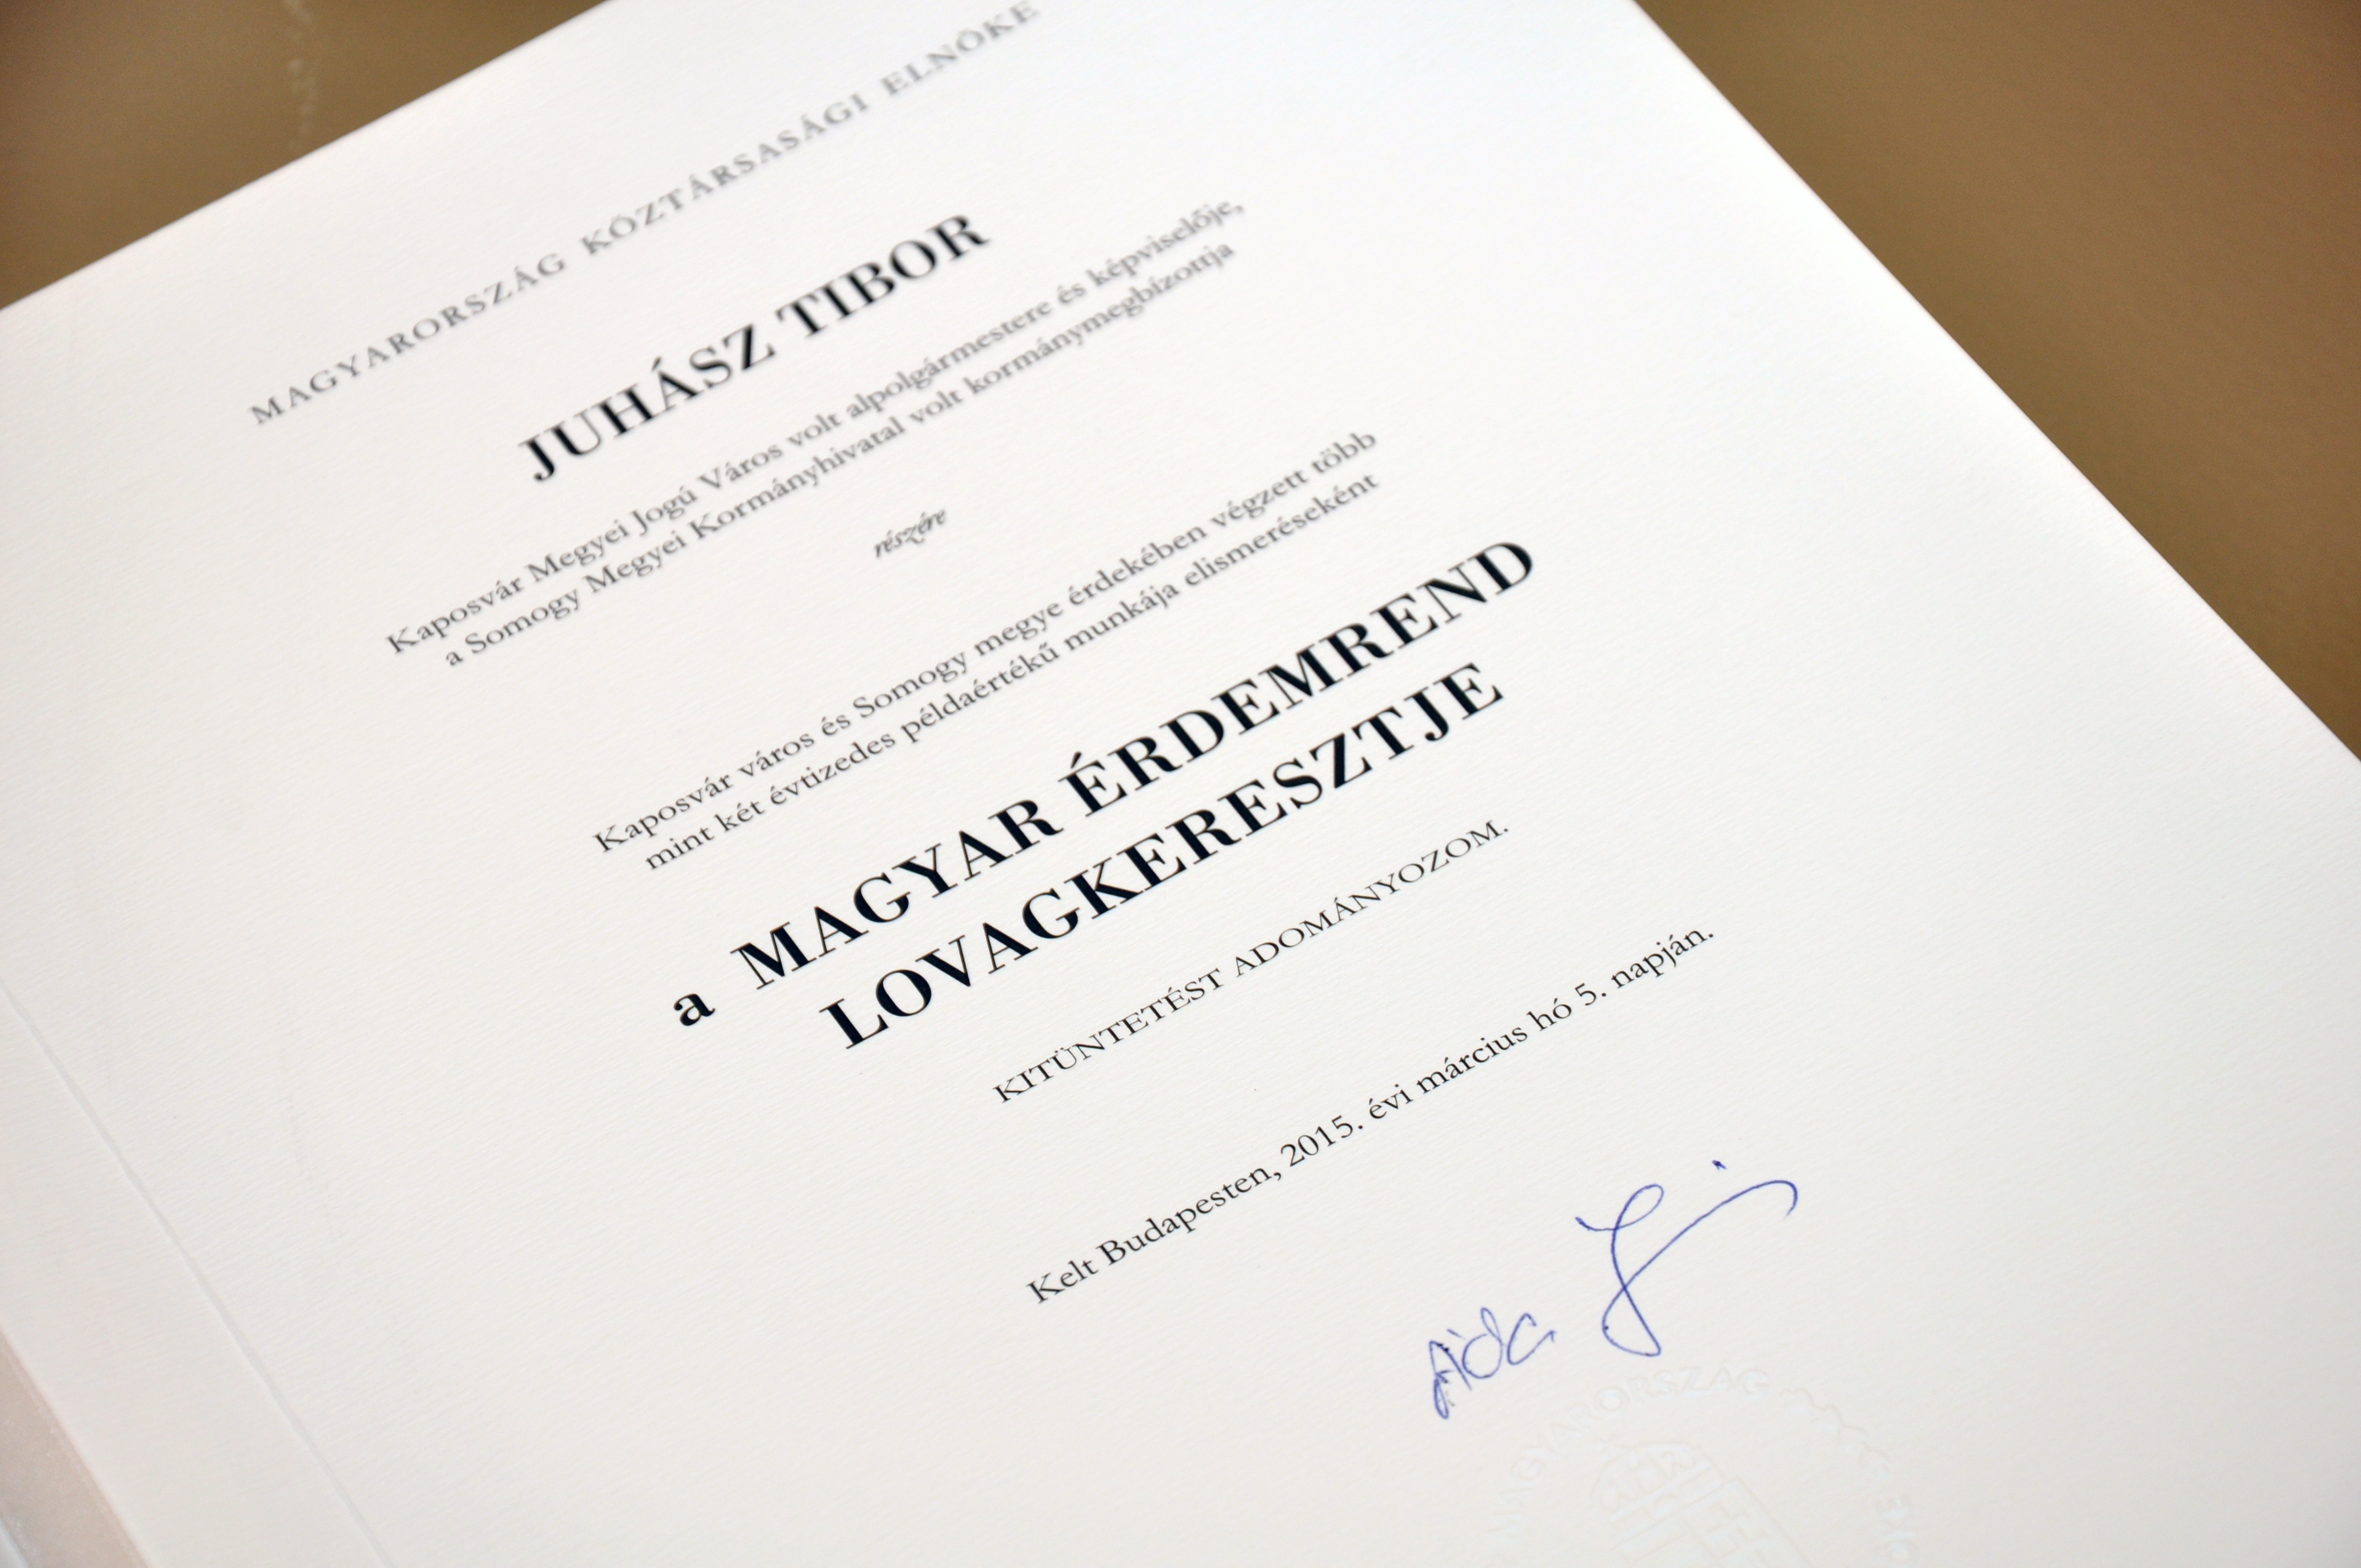 MAGYARORSZÁG KÖZTÁRSASÁGI ELNÖKE
JUHÁSZ TIBOR
Kaposvár Megyei Jogú Város volt alpolgármestere és képviselője,
a Somogy Megyei Kormányhivatal volt kormánymegbízottja
részére
Kaposvár város és Somogy megye érdekében végzett több
mint két évtizedes példaértékű munkája elismeréseként
a MAGYAR ÉRDEMREND
LOVAGKERESZTJE
KITÜNTETÉST ADOMÁNYOZOM.
Kelt Budapesten, 2015. évi március hó 5. napján.
MAGYARORSZÁG